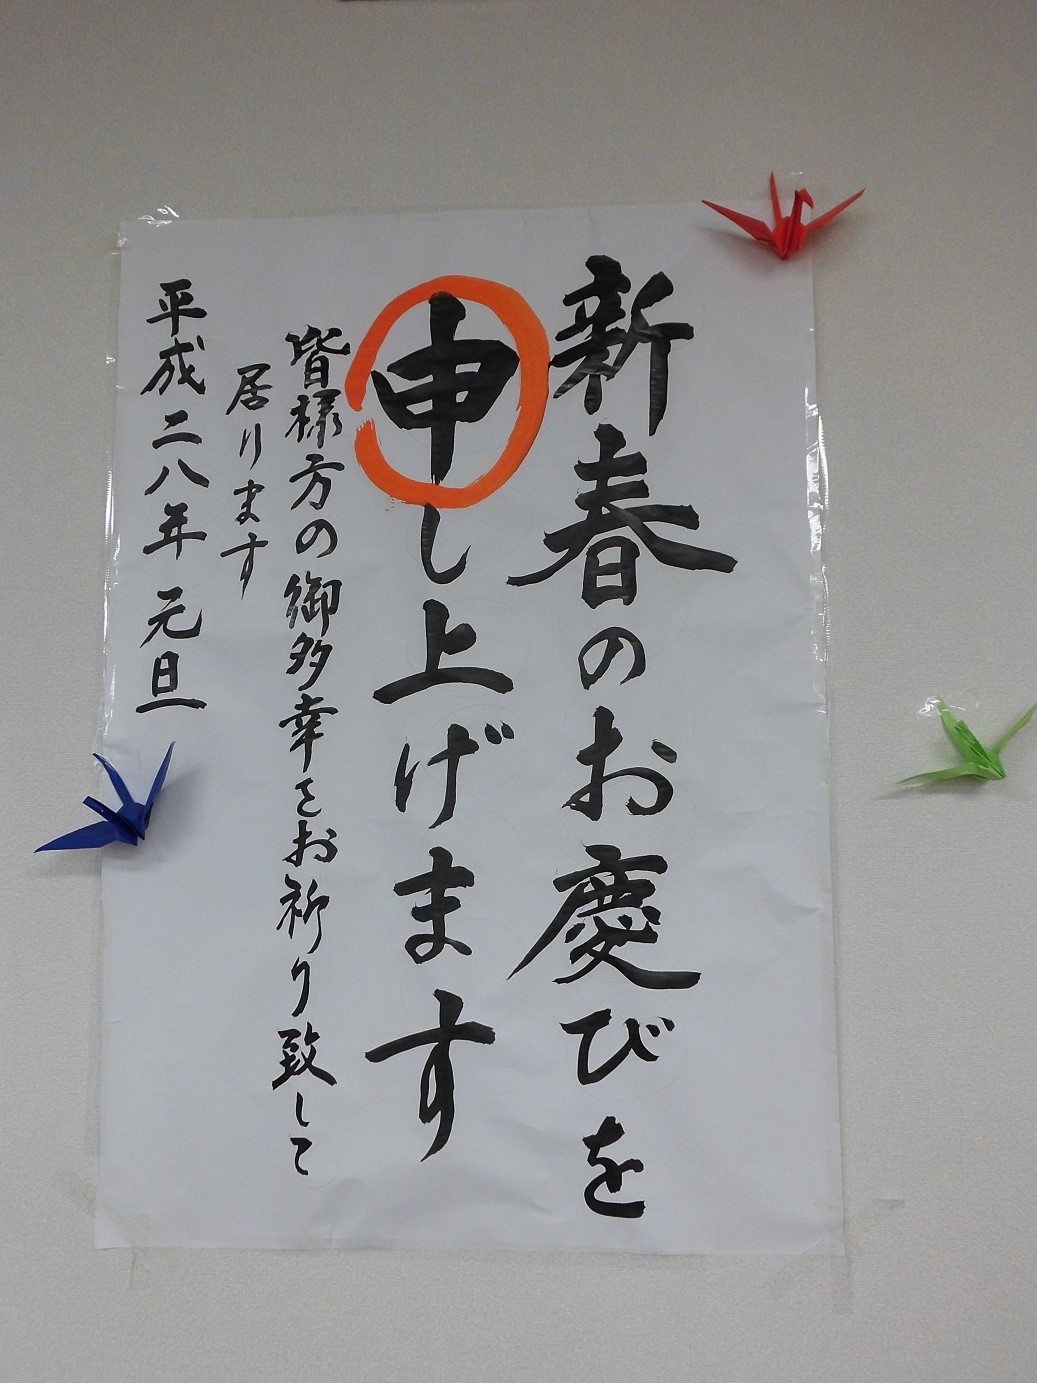 新春のお慶びを
申し上げます
皆様方の御多幸をお祈り致して
居ります
平成二八年 元旦